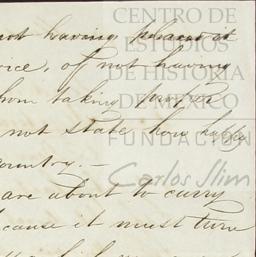 not having
vice, of not having
from taking proper
not state how happy
country. —
are about to carry
cause it must turn
CENTRO DE
ESTUDIOS
DE HISTORIA
DE MÉXICO
FUNDACIÓN
Carlos Slim